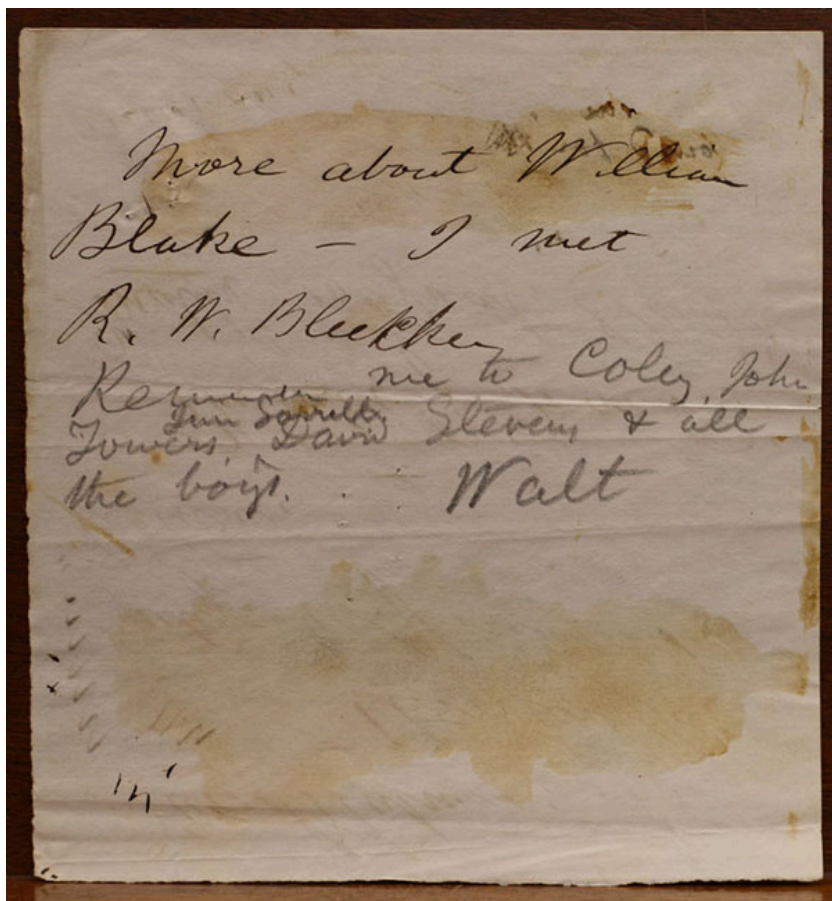 More about William
Blake – I met
R. W. Bleekker
Remember me to Coley, John
Jim Sorrell,
Towers, David Stevens & all
the boys. Walt